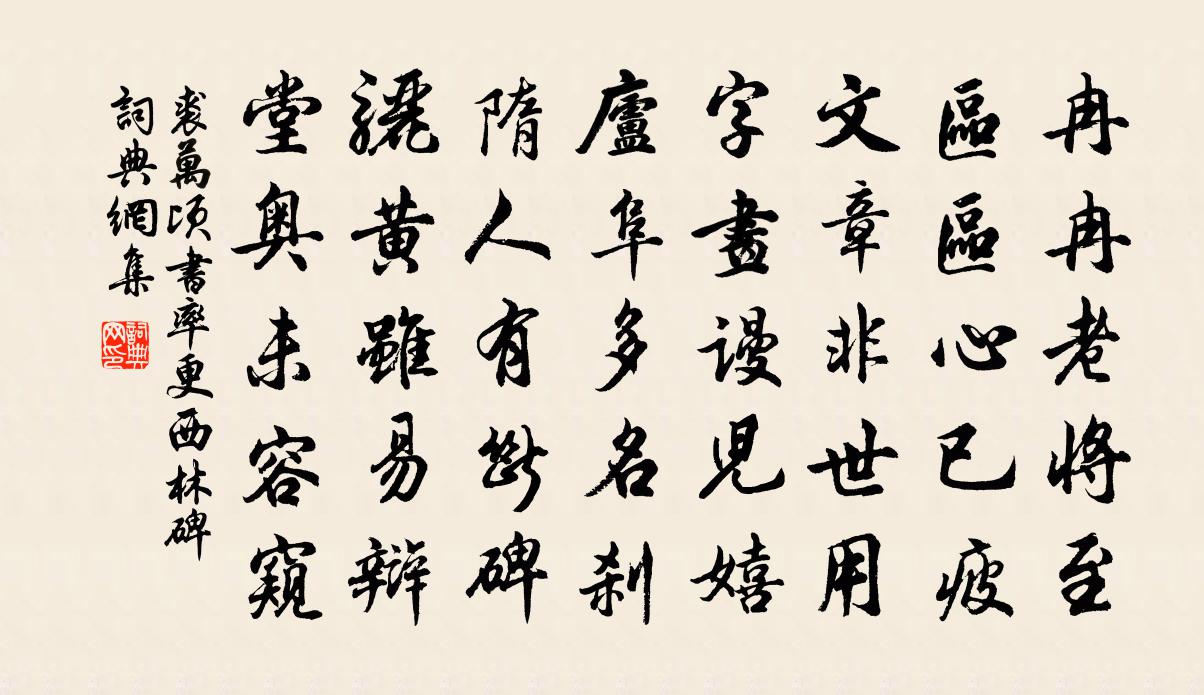 冉冉老將至
區區心已瘦
文章非世用
字畫謾兒嬉
廬阜多名刹
隋人有斷碑
驪黃雖易辯
堂奧未容窺
裘萬頃書率更西林碑
詞典網集
詞典网印